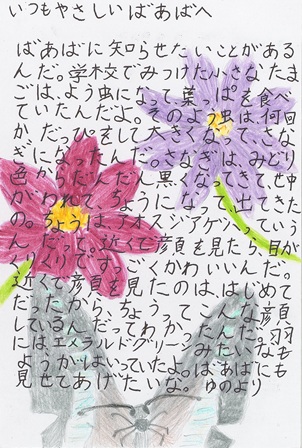 いつもやさしいばあばへ
ばあばに知らせたいことがある
んだ。学校でみつけた小さなたま
ごは、よう虫になって、葉っぱを食べ
ていたんだよ。そのよう虫は、何回
かだっぴをして大きくなって、さな
ぎになったんだ。さなぎは、みどり
色からだんだん黒くなってきて、せ中
がわれて、ちょうになって出てきた
の。ちょうは、アオスジアゲハっていう
んだって。近くで顔を見たら、目が
くりくりで、すっごくかわいいんだ。
近くで顔を見たのは、はじめて
だったから、ちょうってこんな顔
しているんだってわかったんだ。羽
にはエメラルドグリーンみたいなも
ようがはいっていたよ。ばあばにも
見せてあげたいな。